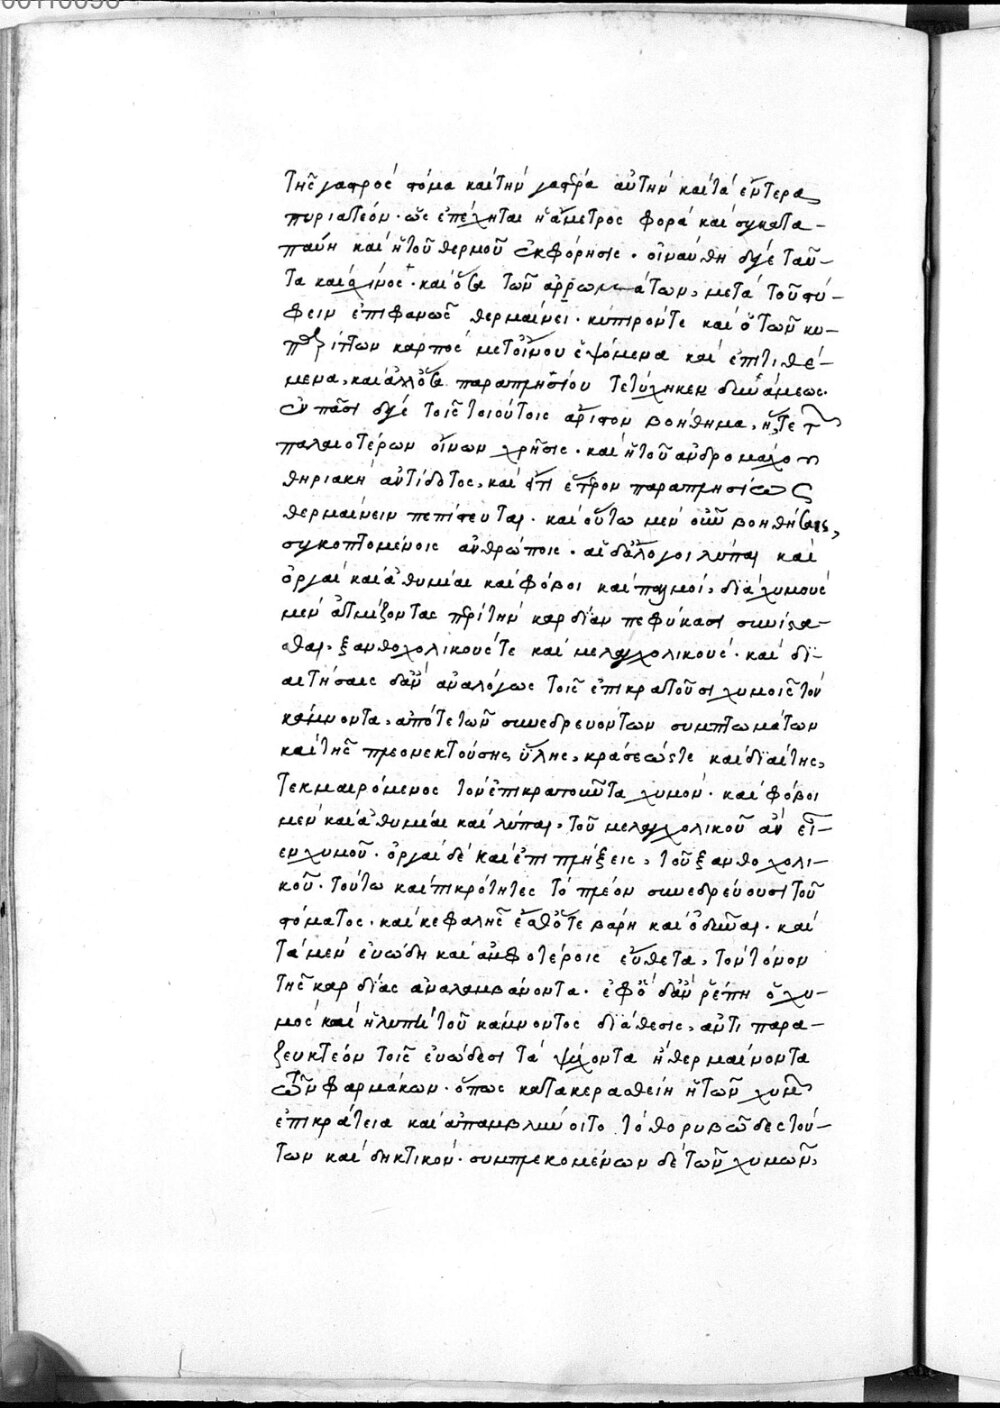 τῆς γαστρὸς στόμα καὶ τὴν γαστέρα αὐτὴν καὶ τὰ ἔντερα
πυριατέον. ὡς ἐπέχηται ἡ ἄμετρος φορὰ καὶ συγκατα-
παύῃ καὶ ἡ τοῦ θερμοῦ ἐκφόρησις. οἰνάνθη δέ γε ταῦ-
τα καὶ σχίνος. καὶ ὅσα τῶν ἀρρωμάτων, μετὰ τοῦ στύ-
φειν ἐπιφανῶς θερμαίνει. κύπερόν τε καὶ ὁ τῶν κυ-
παρίττων καρπὸς μετ οἴνου ἑψόμενα καὶ ἐπιτιθέ-
μενα, καὶ ἄλλ ὅσα παραπλησίου τετύχηκεν δυνάμεως.
ἐν πᾶσι δέ γε τοῖς τοιούτοις ἄριστον βοήθημα, ἥ τε τῶν
παλαιοτέρων οἴνων χρῆσις. καὶ ἡ τοῦ ἀνδρομάχου
θηριακὴ ἀντίδοτος, καὶ εἴ τι ἕτερον παραπλησίως
θερμαίνειν πεπίστευται. καὶ οὕτω μὲν οὖν βοηθήσεις,
συγκοπτομένοις ἀνθρώποις. αἱ δ ἄλογοι λύπαι καὶ
ὀργαὶ καὶ ἀθυμίαι καὶ φόβοι καὶ παλμοὶ, διὰ χυμοὺς
μὲν ἀτμίζοντας περὶ τὴν καρδίαν πεφύκασι συνίστα-
σθαι, ξανθοχολικούς τε καὶ μελαγχολικούς. καὶ δι-
αιτήσαις δ ἂν ἀναλόγως τοῖς ἐπικρατοῦσι χυμοῖς τὸν
κάμνοντα, ἀπό τε τῶν συνεδρευόντων συμπτωμάτων
καὶ τῆς πλεονεκτούσης ὕλης, κράσεώς τε καὶ διαίτης,
τεκμαιρόμενος τὸν ἐπικρατοῦντα χυμόν. καὶ φόβοι
μὲν καὶ ἀθυμίαι καὶ λύπαι, τοῦ μελαγχολικοῦ ἂν εἶ-
εν χυμοῦ. ὀργαὶ δὲ καὶ ἐπιπλήξεις, τοῦ ξανθοχολι-
κοῦ. τούτω καὶ πικρότητες τὸ πλέον συνεδρεύουσι τοῦ
στόματος. καὶ κεφαλῆς ἔσθ ὅτε βάρη καὶ ὀδύναι. καὶ
τὰ μὲν εὐώδη καὶ ἀμφοτέροις εὔθετα, τὸν τόνον
τῆς καρδίας ἀναλαμβάνοντα. ἐφ ὃ δ ἂν ῥέπῃ ὁ χυ-
μὸς καὶ ἡ λυπεῖ τοῦ κάμνοντος διάθεσις, ἀντιπαρα-
ζευκτέον τοῖς εὐώδεσι τὰ ψύχοντα ἢ θερμαίνοντα
τῶν φαρμάκων. ὅπως κατακερασθείη ἡ τῶν χυμῶν
ἐπικράτεια καὶ ἀπαμβλύνοιτο τὸ θορυβῶδες τού-
των καὶ δηκτικόν. συμπλεκομένων δὲ τῶν χυμῶν,